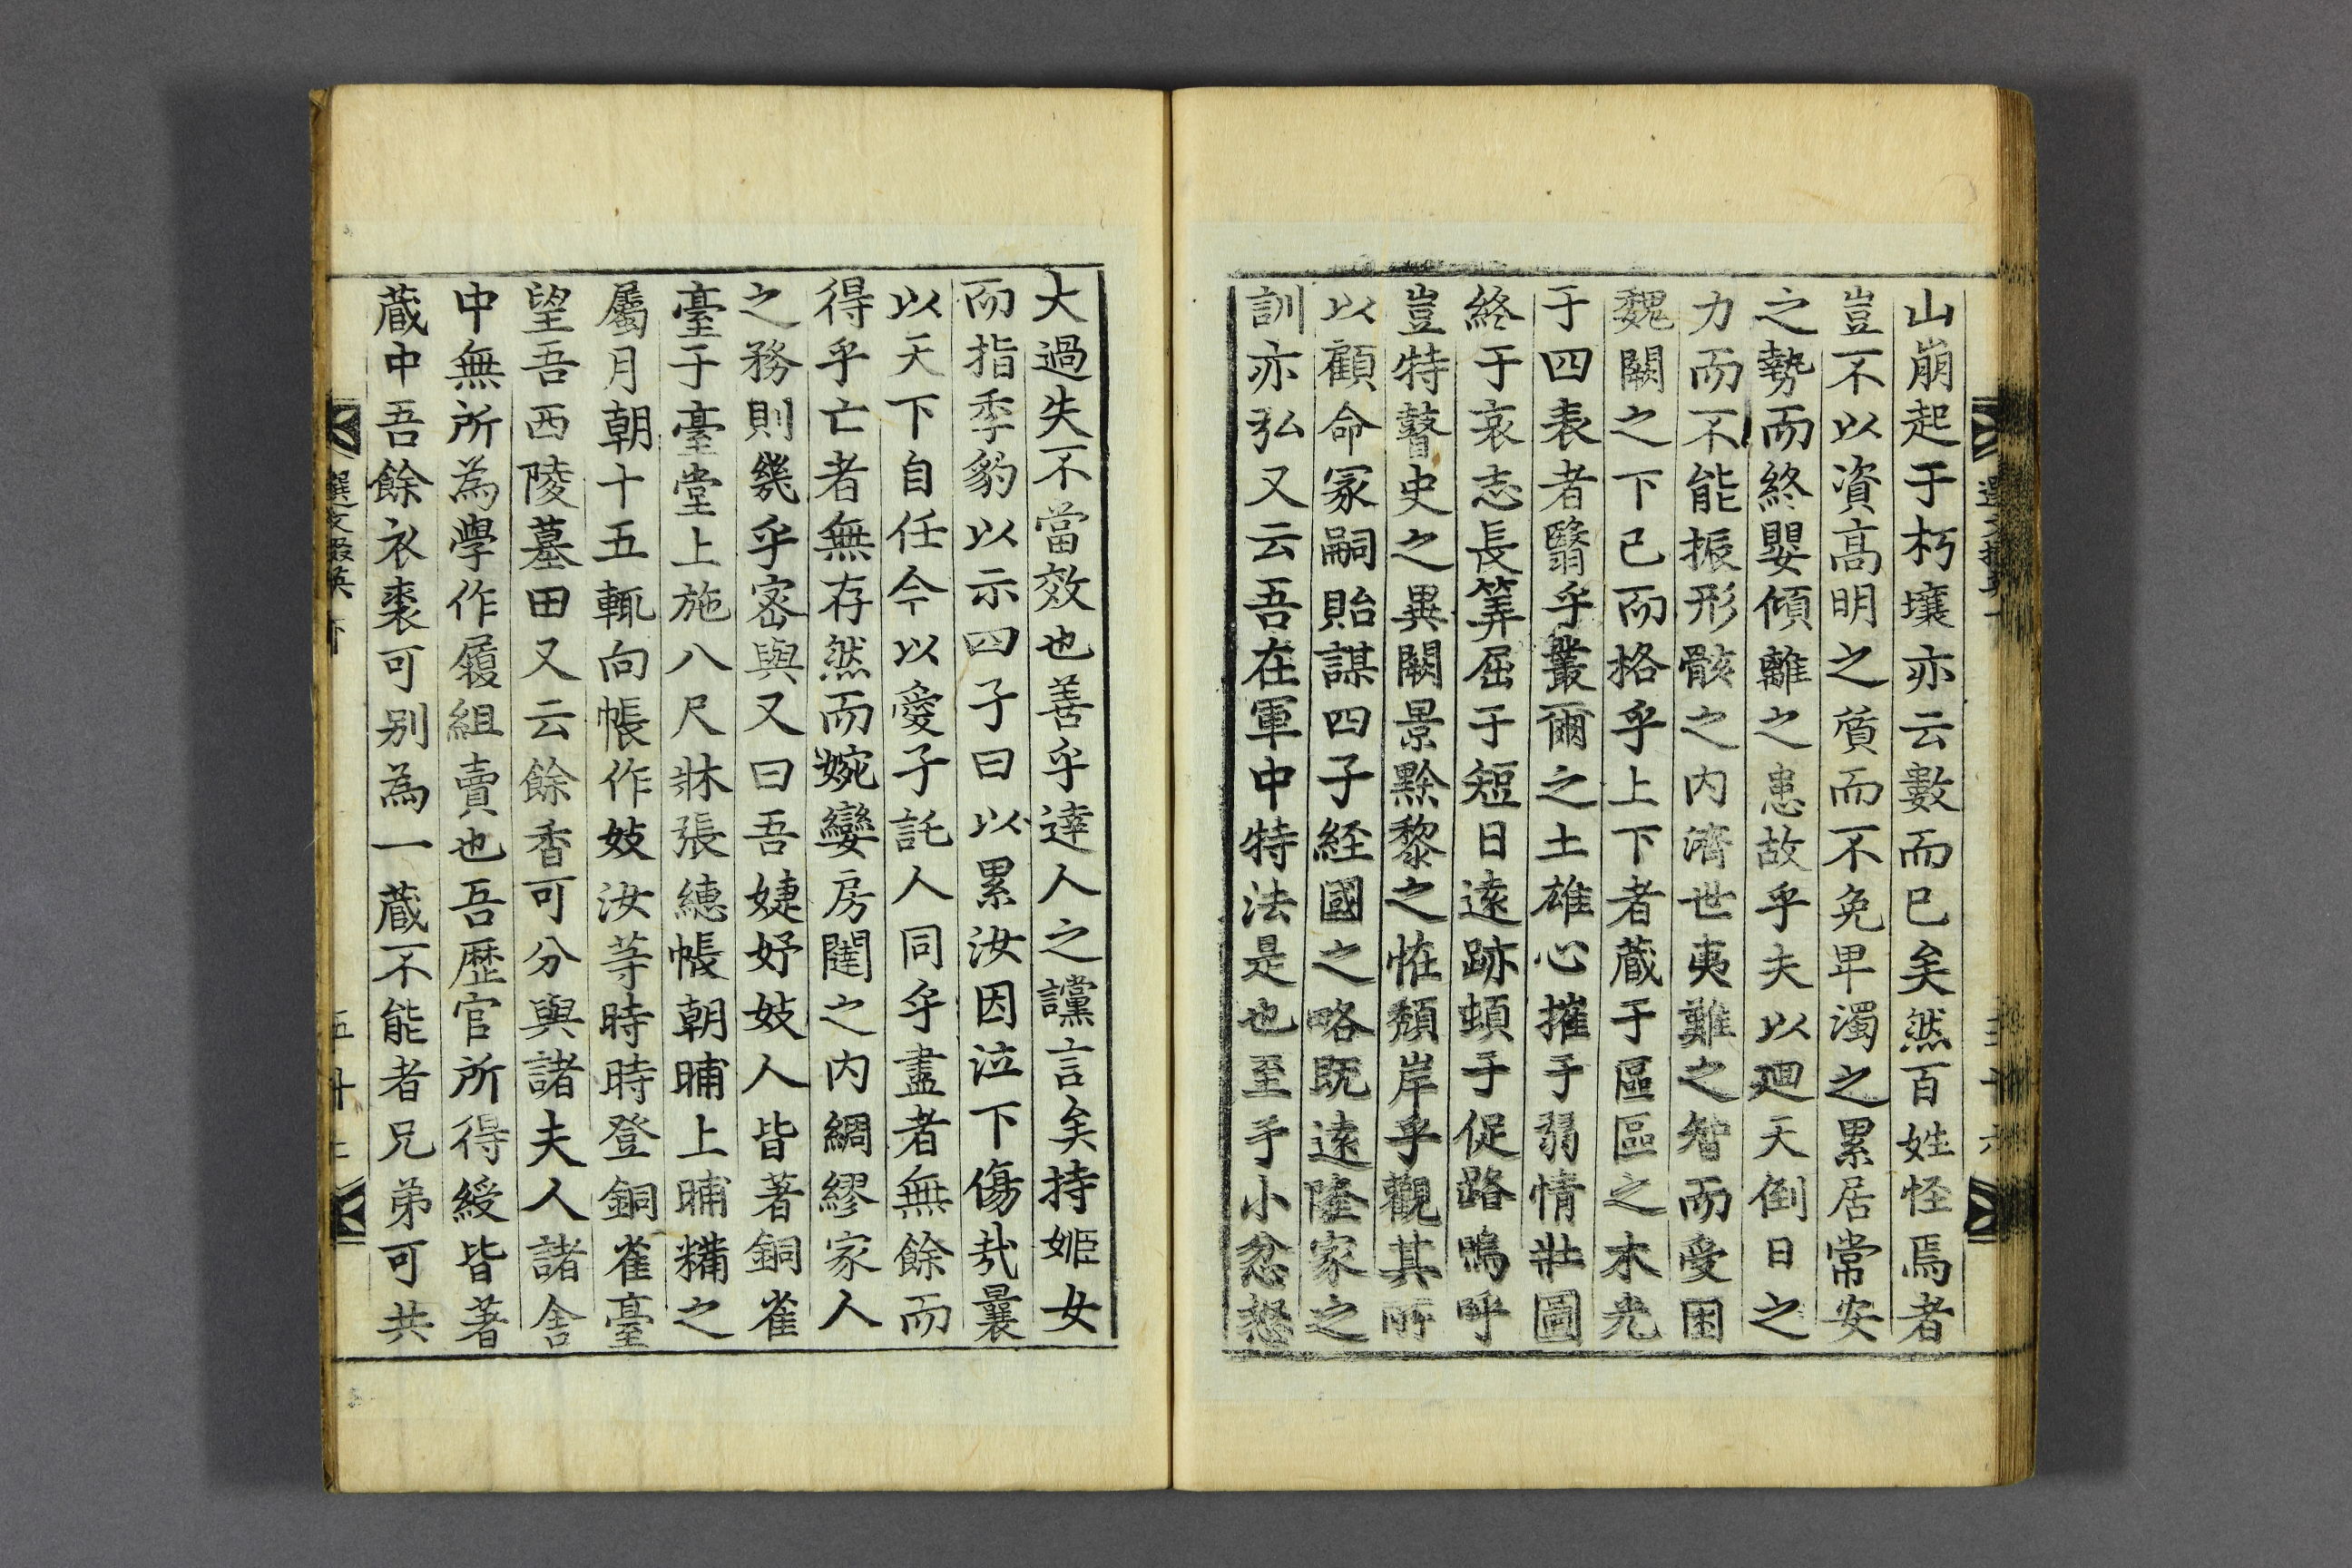 山崩起于朽壤亦云數而已矣然百姓怪焉者
豈不以資高明之質而不免卑濁之累居常安
之勢而終嬰傾離之患故乎夫以迴天倒日之
力而不能振形骸之内濟世夷難之智而受困
魏闕之下已而格乎上下者蔵于區區之木光
于四表者翳乎叢爾之土雄心摧于弱情壯圖
終于哀志長筭屈于短日遠跡頓于促路嗚呼
豈特瞽史之異闕景黔黎之恠頽岸乎觀其所
以顧命冢嗣貽謀四子経國之略既遠隆家之
訓亦弘又云吾在軍中特法是也至于小忿怒
大過失不當效也善乎達人之讜言矣持姬女
而指季豹以示四子曰以累汝因泣下傷㢤曩
以天下自任今以愛子託人同乎盡者無餘而
得乎亡者無存然而婉孌房闥之内綢繆家人
之務則幾乎密與又曰吾婕妤妓人皆著銅雀
臺于臺堂上施八尺牀張繐帳朝晡上晡糒之
屬月朝十五輒向帳作妓汝等時時登銅雀臺
望吾西陵墓田又云餘香可分與諸夫人諸舍
中無所為學作履組賣也吾歷官所得綬皆著
蔵中吾餘衣裘可別為一蔵不能者兄弟可共